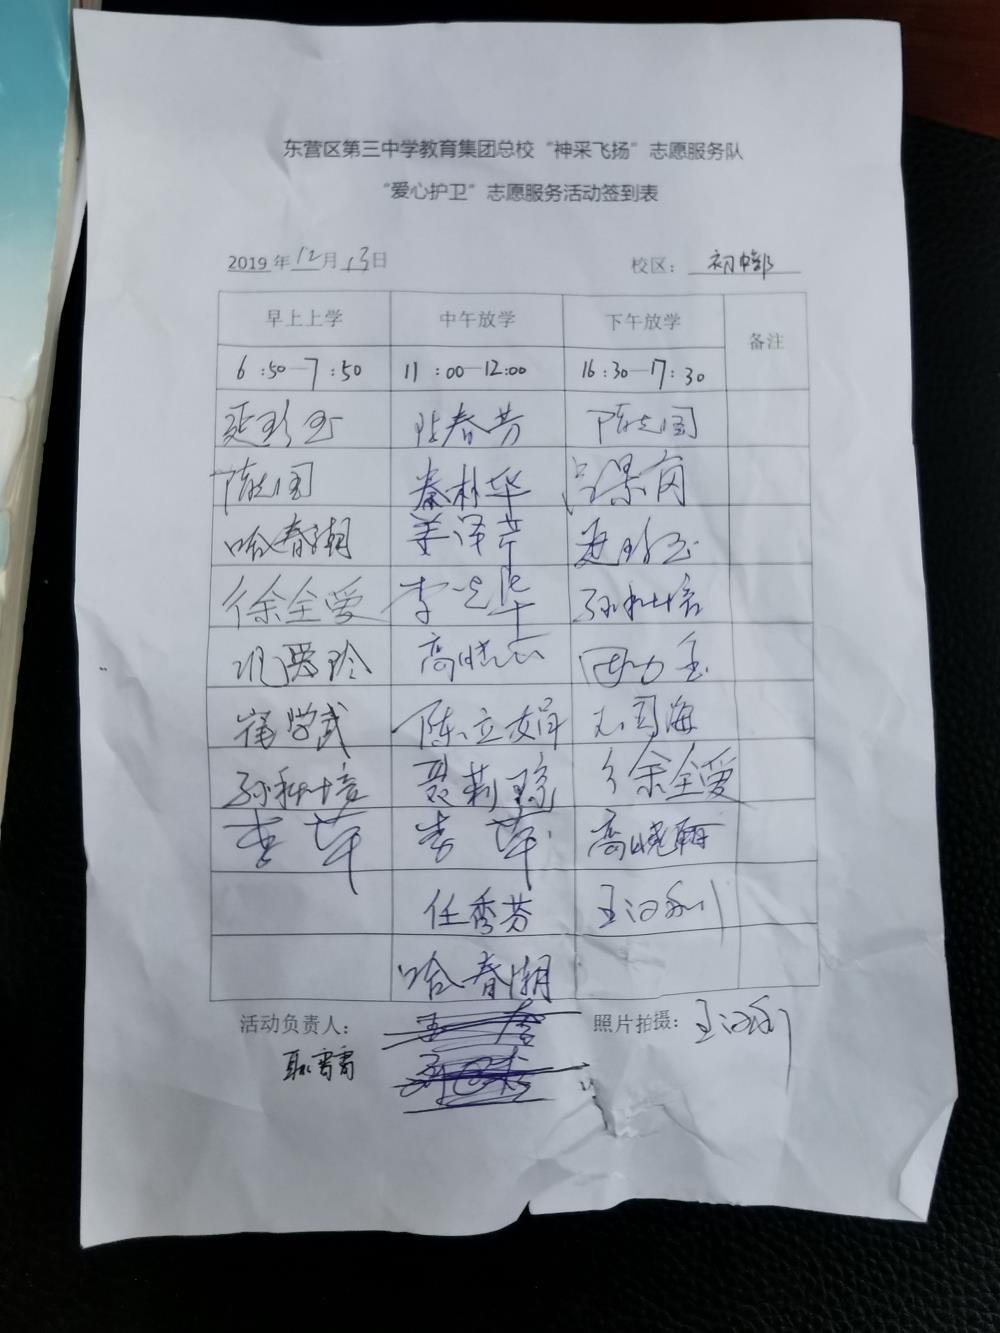 东营区第三中学教育集团总校“神采飞扬”志愿服务队
“爱心护卫”志愿服务活动签到表
2019年12月13日 校区：初中部
早上上学 中午放学 下午放学 备注
6:50—7:50 11:00—12:00 16:30—17:30
春芳 陈志国
陈志国 秦朴华 吕景岗
哈春潮 姜泽芹
徐全爱 李 孙科培
爱玲 高晓
崔学武 陈立娟 国海
孙科培 聂莉琼 徐全爱
李萍 李萍 高晓丽
任秀芬 王汉利
哈春潮
活动负责人： 照片拍摄：王汉利
耿离离